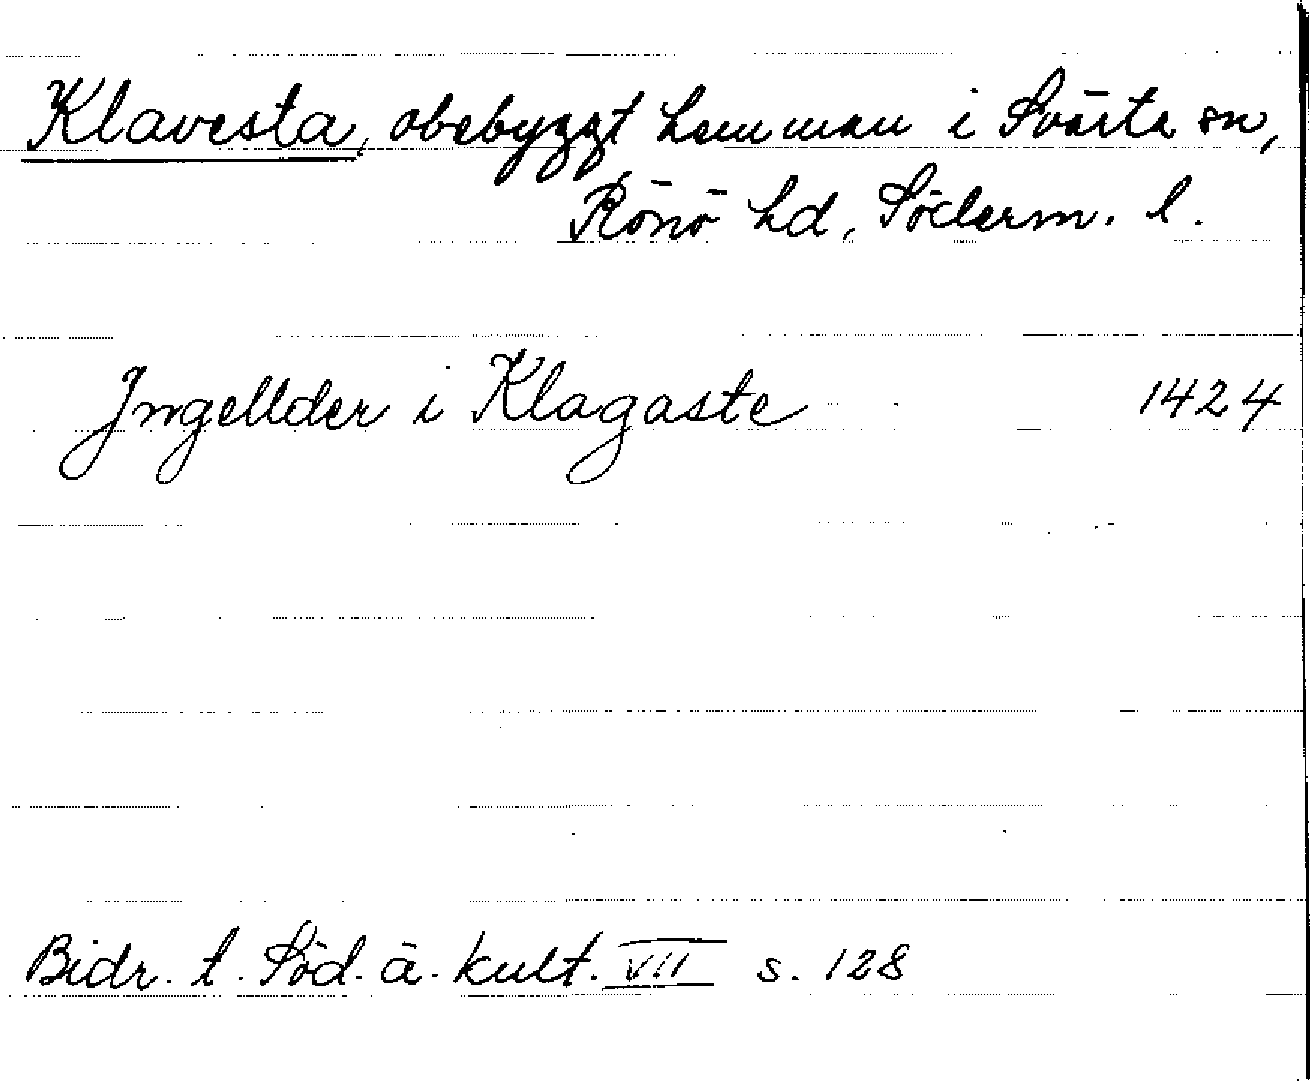 Klavesta, obebyggt hemman i Svärta sn,
Rönö hd, Söderm. l.
Jngellder i Klagaste 1424
Bidr. t. Söd. ä. kult. VII s. 128